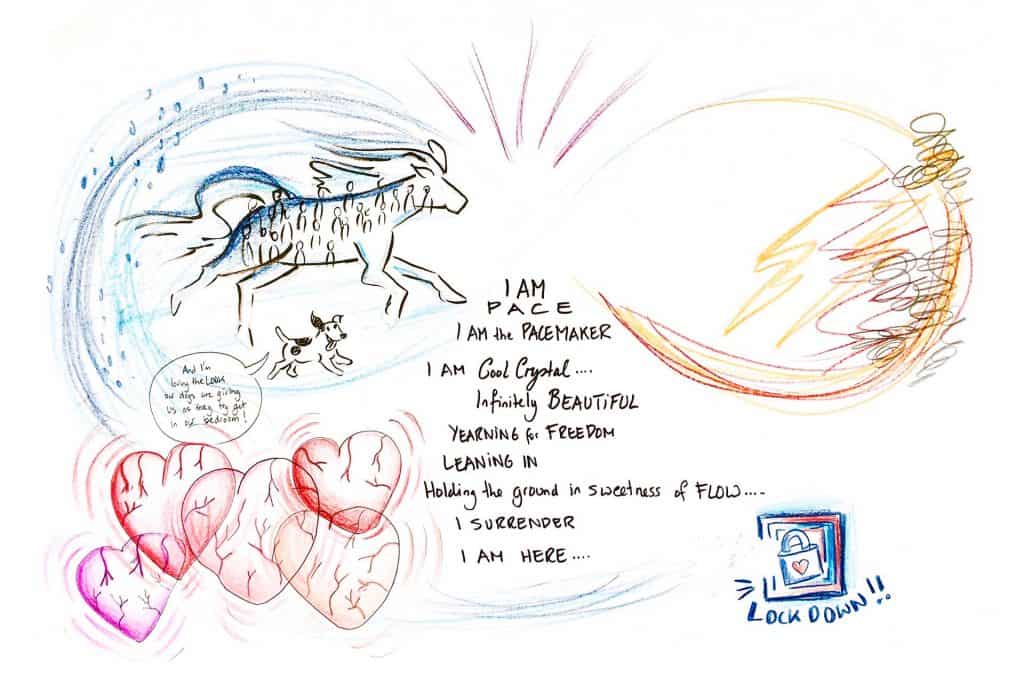 I AM
PACE
I AM the PACEMAKER
I AM Cool Crystal....
Infinitely BEAUTIFUL
YEARNING for FREEDOM
LEANING IN
Holding the ground in sweetness of FLOW....
I SURRENDER
I AM HERE....
And I'm
loving the LOOKS
our dogs are giving
us as they try get
in our bedroom!
LOCKDOWN!!